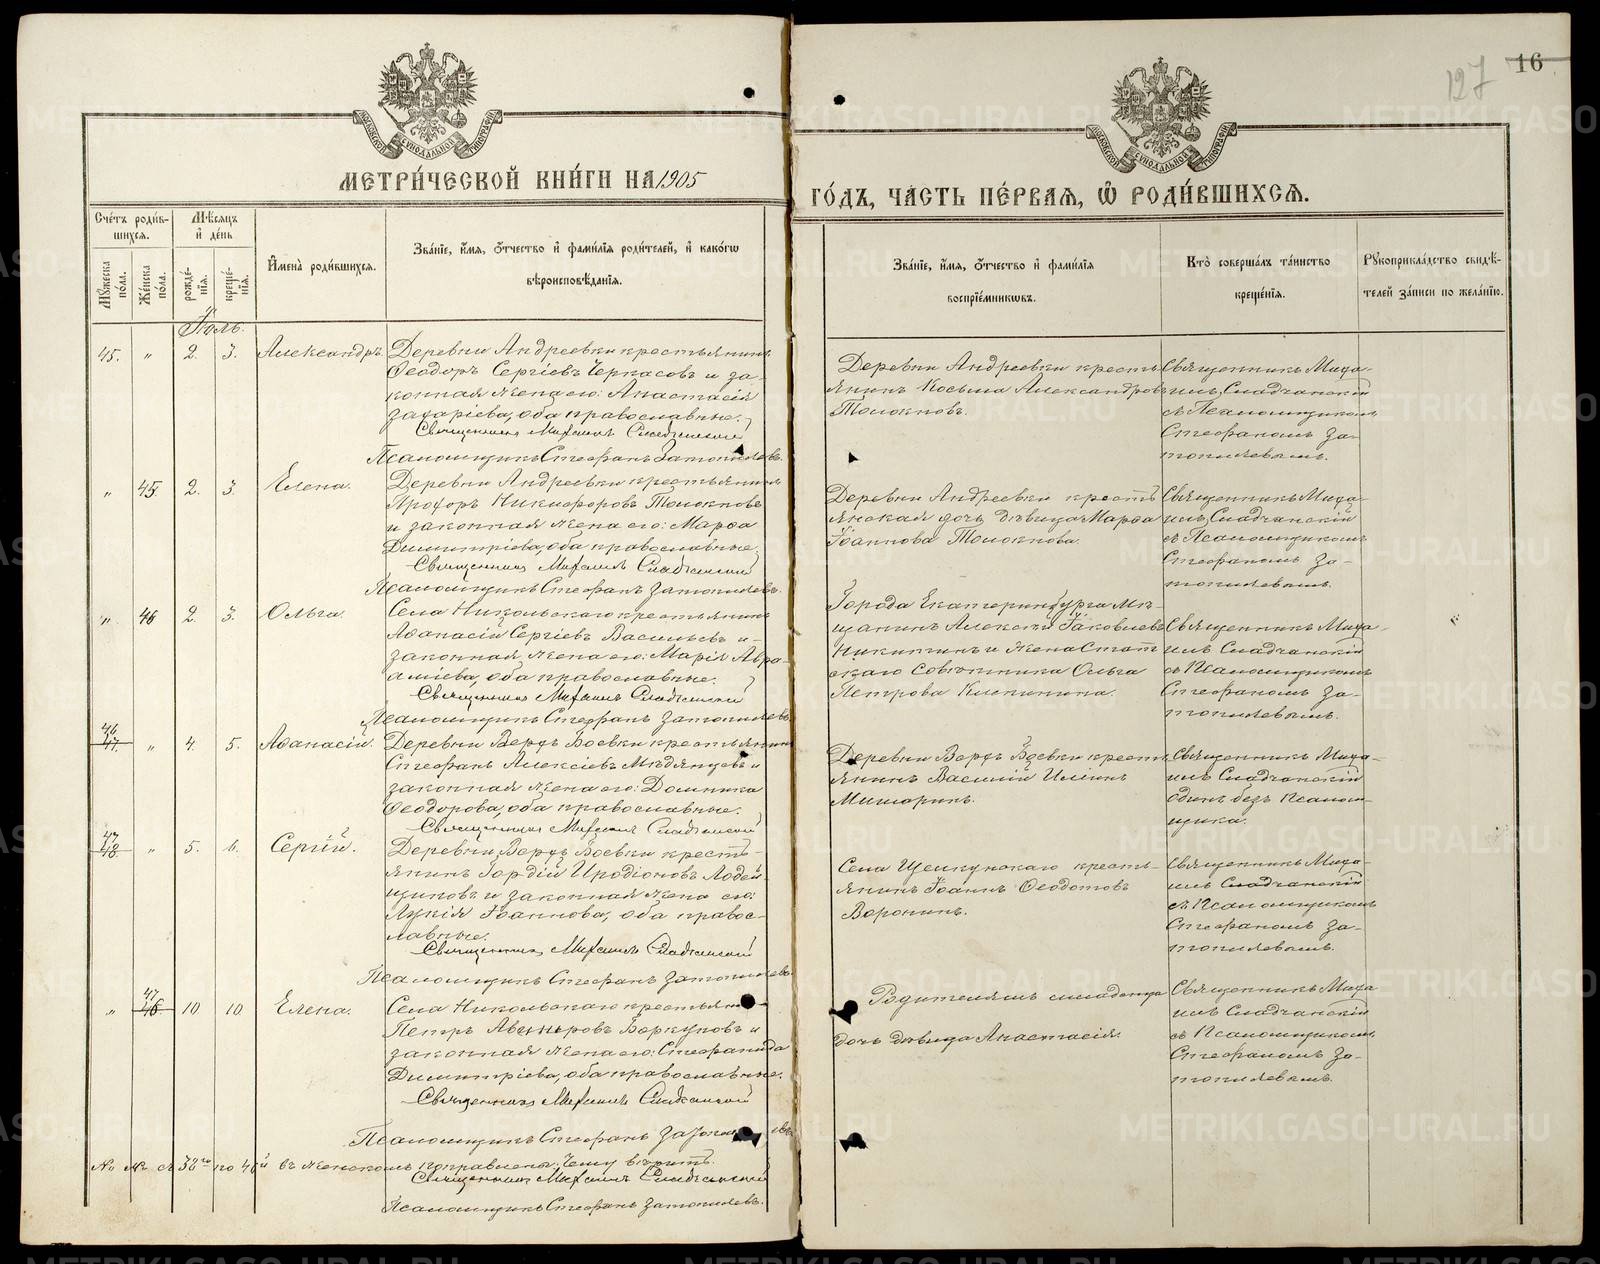 127
16
МОСКОВСКОЙ СѴНОДАЛЬНОЙ ТИПОГРАФІИ
МОСКОВСКОЙ СѴНОДАЛЬНОЙ ТИПОГРАФІИ
МЕТРИ́ЧЕСКОЙ КНИ́ГИ НА 1905
ГО́ДЪ, ЧА́СТЬ ПЕ́РВАЯ, Ѡ РОДИ́ВШИХСЯ.
Сче́тъ роди́в-
шихся.
Мꙋжеска по́ла.
Же́нска по́ла.
Мѣ́сяцъ
и҆ де́нь
рожде́-
нїя.
креще́-
нїя.
И҆мена̀ роди́вшихся.
Зва́нїе, и҆́мя, ѻ҆́тчество и҆ фами́лїя роди́телей, и҆ како́гѡ
вѣроисповѣ́данїя.
Зва́нїе, и҆́мя, ѻ҆́тчество и҆ фами́лїя
воспрїе́мникѡвъ.
Кто̀ соверша́лъ та́инство
креще́нїя.
Рꙋкоприкла́дство свидѣ́-
телей за́писи по жела́нїю.
Іюль.
45. " 2. 3. Александръ.
Деревни Андреевки крестьянинъ
Ѳеодоръ Сергіевъ Черкасовъ и за-
конная жена его: Анастасія
Захаріева, оба православные.
Священникъ Михаилъ Сладчанскій
Псаломщикъ Стефанъ Затопляевъ.
Деревни Андреевки кресть-
янинъ Косьма Александровъ
Толокновъ.
Священникъ Миха-
илъ Сладчанскій
съ Псаломщикомъ
Стефаномъ За-
топляевымъ.
" 45. 2. 3. Елена.
Деревни Андреевки крестьянинъ
Никифоровъ Толокновъ
и законная жена его: Марѳа
Димитріева, оба православные.
Священникъ Михаилъ Сладчанскій
Псаломщикъ Стефанъ Затопляевъ.
Деревни Андреевки кресть-
янская дочь дѣвица Марѳа
Іоаннова Толокнова.
Священникъ Миха-
илъ Сладчанскій
съ Псаломщикомъ
Стефаномъ За-
топляевымъ.
" 46 2. 3. Ольга.
Села Никольскаго крестьянинъ
Аѳанасій Сергіевъ Васильевъ и
законная жена его: Марія Авра-
аміева, оба православные.
Священникъ Михаилъ Сладчанскій
Псаломщикъ Стефанъ Затопляевъ.
Города Екатеринбурга Мѣ-
щанинъ Алексѣй Іаковлевъ
Никитинъ и жена Статскаго Совѣтника Ольга
Петрова
Священникъ Миха-
илъ Сладчанскій
съ Псаломщикомъ
Стефаномъ За-
топляевымъ.
46
47. " 4. 5. Аѳанасій.
Деревни Верхъ Боевки крестьянинъ
Стефанъ Алексіевъ Мѣдянцевъ и
законная жена его: Домника
Ѳеодорова, оба православные.
Священникъ Михаилъ Сладчанскій
Деревни Верхъ Боевки кресть-
янинъ Василій Иліинъ
Мишаринъ.
Священникъ Миха-
илъ Сладчанскій
одинъ безъ Псалом-
щика.
47
48. " 5. 6. Сергій.
Деревни Верхъ Боевки кресть-
янинъ Гордій Иродіоновъ Лодей-
щиковъ и законная жена его:
Лукія Іоаннова, оба правос-
лавные.
Священникъ Михаилъ Сладчанскій
Псаломщикъ Стефанъ Затопляевъ.
Села Щелкунскаго кресть-
янинъ Іоаннъ Ѳеодотовъ
Воронинъ.
Священникъ Миха-
илъ Сладчанскій
съ Псаломщикомъ
Стефаномъ За-
топляевымъ.
47
" 46 10 10 Елена.
Села Никольскаго крестьянинъ
Петръ Авенировъ Боркуновъ и
законная жена его: Стефанида
Димитріева, оба православные.
Священникъ Михаилъ Сладчанскій
Псаломщикъ Стефанъ Затопляевъ
Родителямъ младенца
дочь дѣвица Анастасія.
Священникъ Миха-
илъ Сладчанскій
съ Псаломщикомъ
Стефаномъ За-
топляевымъ.
№ № съ 38го по 46й въ женскомъ поправлены. Чему вѣрить.
Священникъ Михаилъ Сладчанскій
Псаломщикъ Стефанъ Затопляевъ.
METRIKI.GASO-URAL.RU